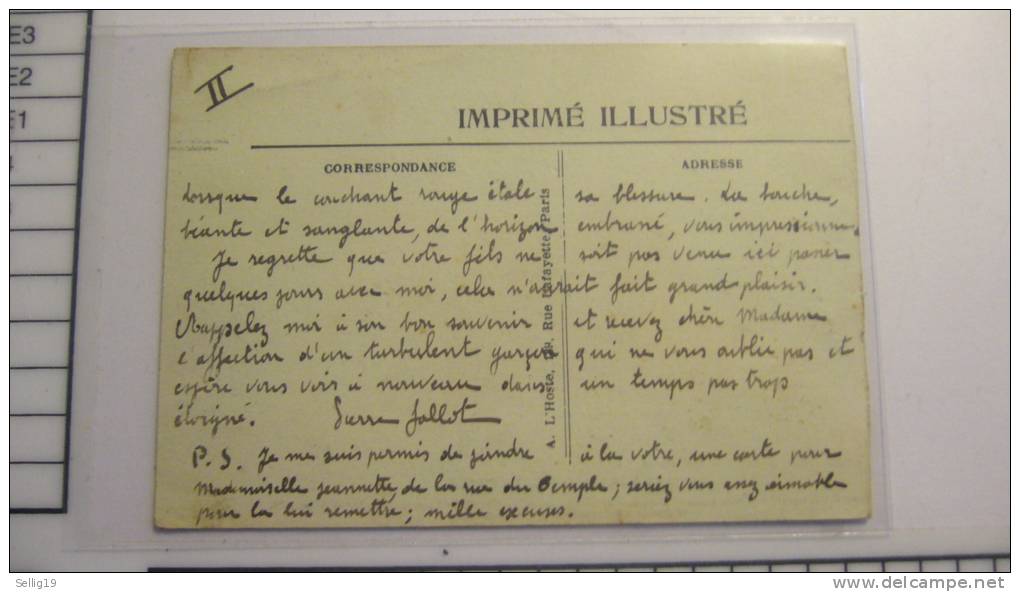 E3
E2
E1
II
IMPRIMÉ ILLUSTRÉ
CORRESPONDANCE
ADRESSE
Lorsque le couchant rouge étale sa blessure. La bouche,
béante et sanglante, de l'horizon embrasé, vous impressionne.
Je regrette que votre fils ne soit pas venu ici passer
quelques jours avec moi, cela m'aurait fait grand plaisir.
Rappelez moi à son bon souvenir et recevez chère Madame
l'affection d'un turbulent garçon qui ne vous oublie pas et
espère vous voir à nouveau dans un temps pas trop
éloigné. Pierre
P.S. Je me suis permis de joindre à la votre, une carte pour
Mademoiselle Jeannette, de la rue du Temple; seriez vous assez aimable
pour la lui remettre; mille excuses.
A. L'Hoste, Rue Lafayette, Paris
Sellig19
www.delcampe.net